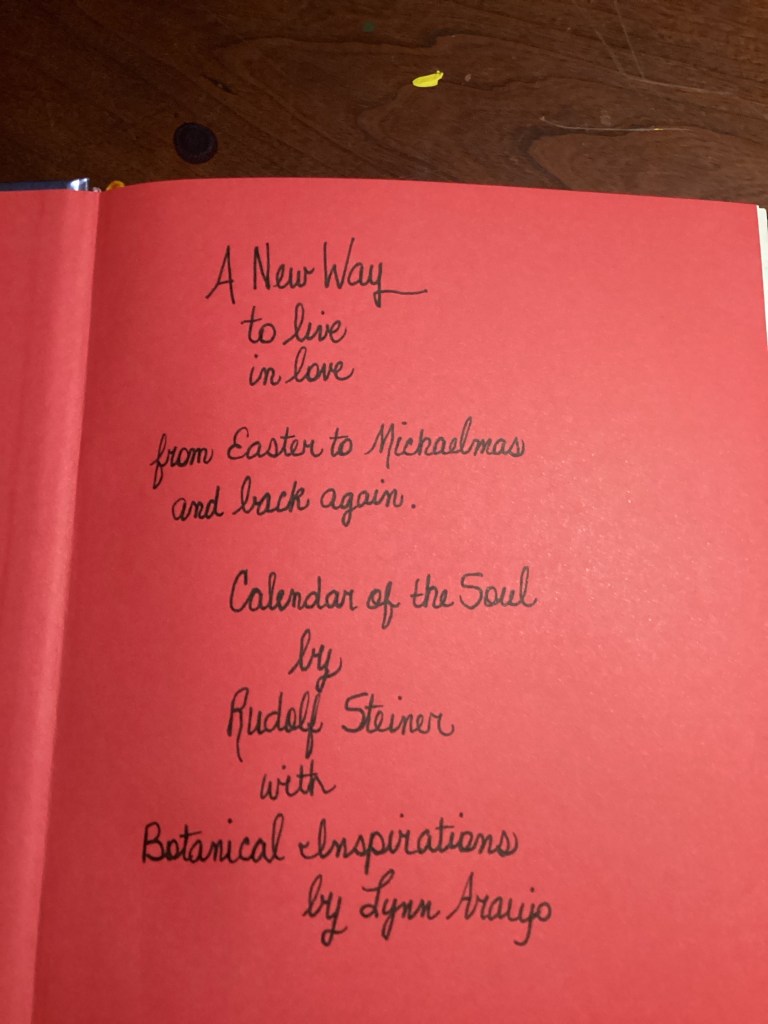 A New Way
to live
in love
from Easter to Michaelmas
and back again.
Calendar of the Soul
by
Rudolf Steiner
with
Botanical Inspirations
by Lynn Araujo